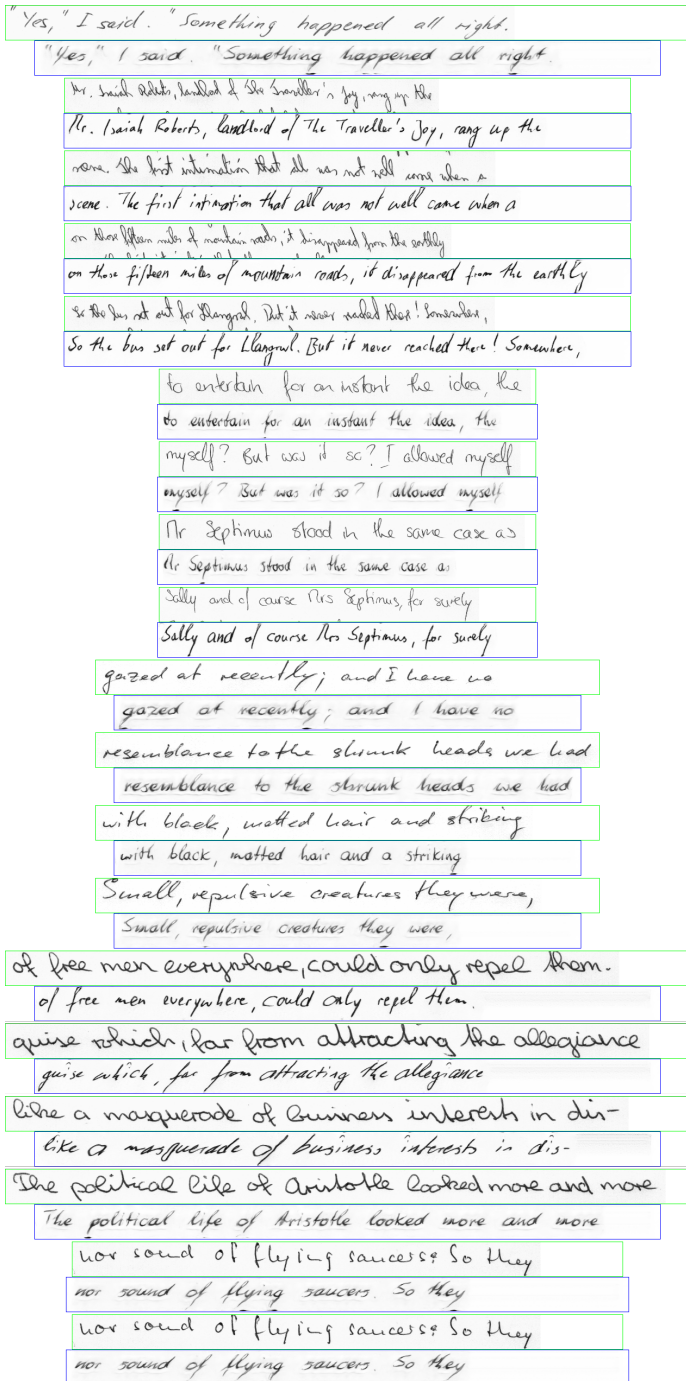 "Yes," I said. "Something happened all right.
"Yes," I said. "Something happened all right.
Mr. Isaiah Roberts, landlord of The Traveller's Joy, rang up the
Mr. Isaiah Roberts, landlord of The Traveller's Joy, rang up the
scene. The first intimation that all was not well came when a
scene. The first intimation that all was not well came when a
on those fifteen miles of mountain roads, it disappeared from the earthly
on those fifteen miles of mountain roads, it disappeared from the earthly
So the bus set out for Llangrwl. But it never reached there! Somewhere,
So the bus set out for Llangrwl. But it never reached there! Somewhere,
to entertain for an instant the idea, the
to entertain for an instant the idea, the
myself? But was it so? I allowed myself
myself? But was it so? I allowed myself
Mr Septimus stood in the same case as
Mr Septimus stood in the same case as
Sally and of course Mrs Septimus, for surely
Sally and of course Mrs Septimus, for surely
gazed at recently; and I have no
gazed at recently; and I have no
resemblance to the shrunk heads we had
resemblance to the shrunk heads we had
with black, matted hair and striking
with black, matted hair and a striking
Small, repulsive creatures they were,
Small, repulsive creatures they were,
of free men everywhere, could only repel them.
of free men everywhere, could only repel them.
guise which, far from attracting the allegiance
guise which, far from attracting the allegiance
like a masquerade of business interests in dis-
like a masquerade of business interests in dis-
The political life of Aristotle looked more and more
The political life of Aristotle looked more and more
nor sound of flying saucers. So they
nor sound of flying saucers. So they
nor sound of flying saucers. So they
nor sound of flying saucers. So they